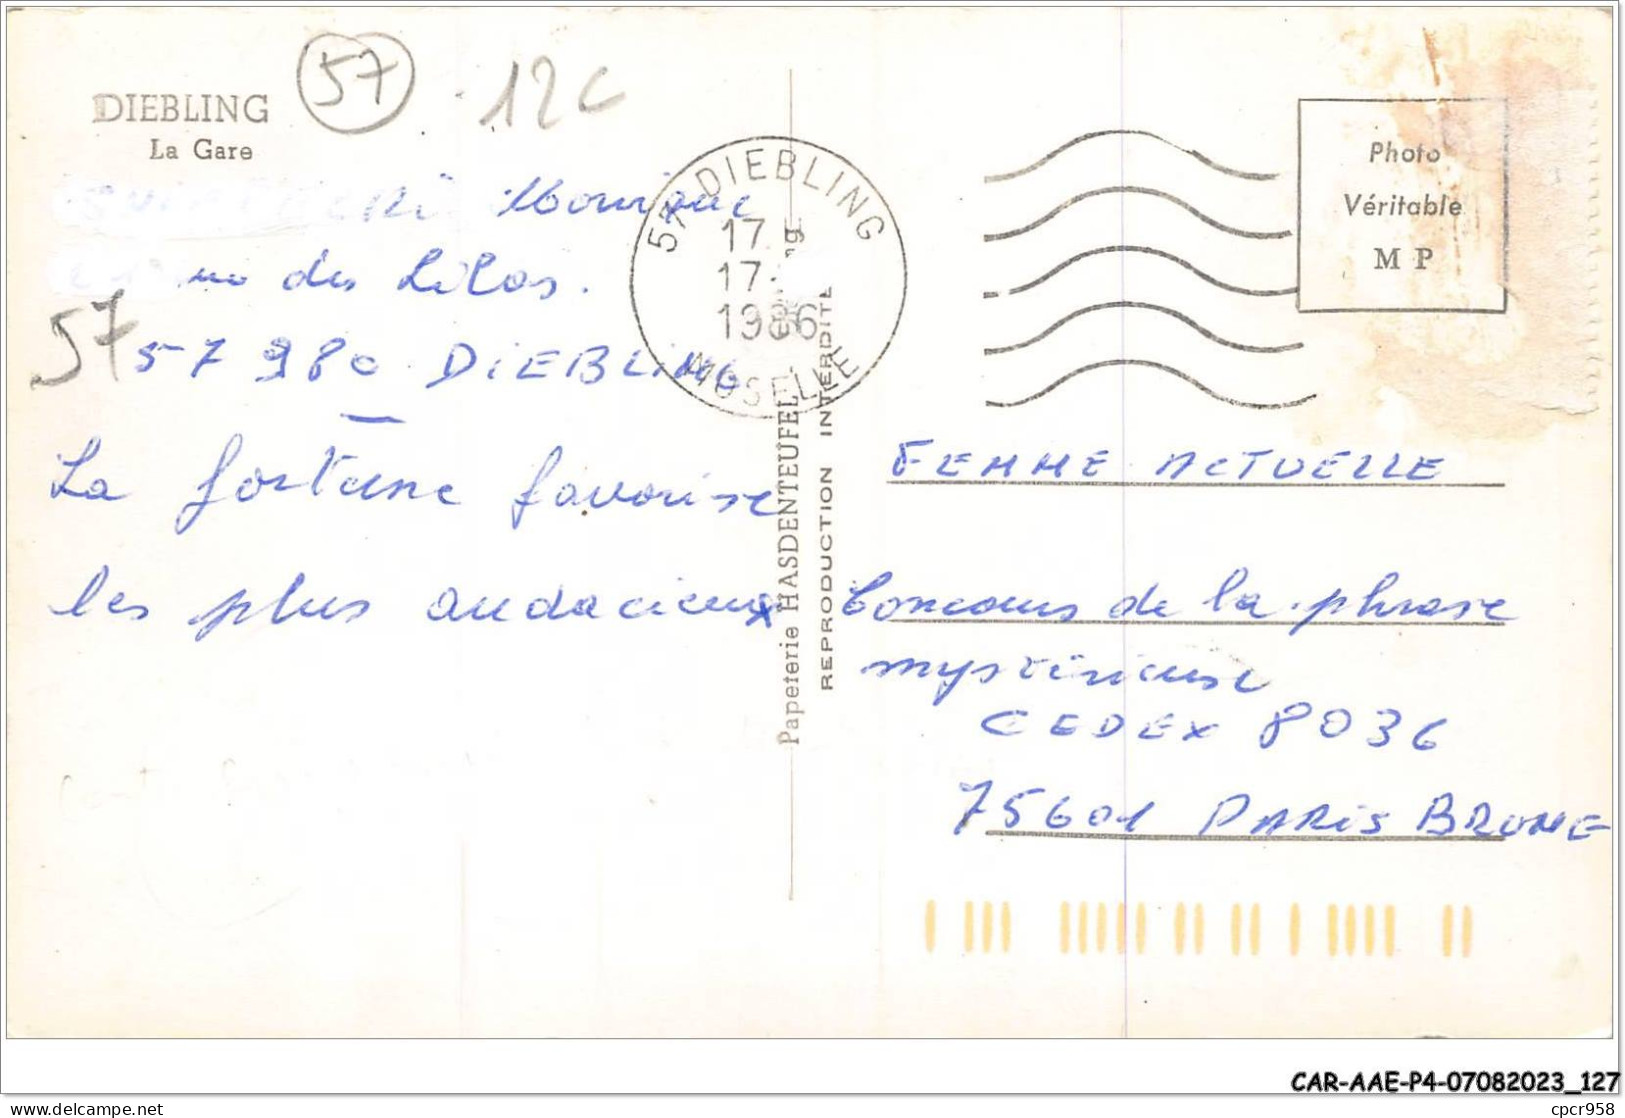 DIEBLING
La Gare
57
12c
Monique
des Lilas.
57
57980 DIEBLING
La fortune favorise
les plus audacieux
57 DIEBLING
17
17
1986
MOSELLE
Papeterie HASDENTEUFEL
REPRODUCTION INTERDITE
Photo
Véritable
M P
FEMME ACTUELLE
Concours de la phrase
mystérieuse
CEDEX 8036
75601 PARIS BRUNE
CAR-AAE-P4-07082023_127
delcampe.net
cpcr958